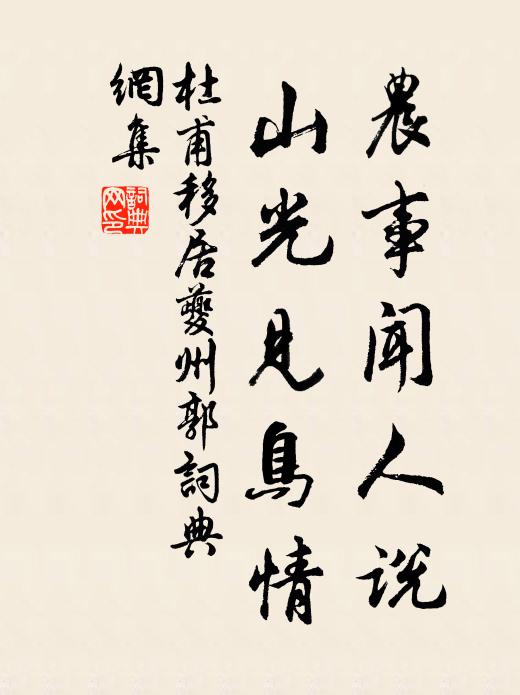 農事聞人説
山光見鳥情
杜甫移居夔州郭詞典
網集
詞典網印